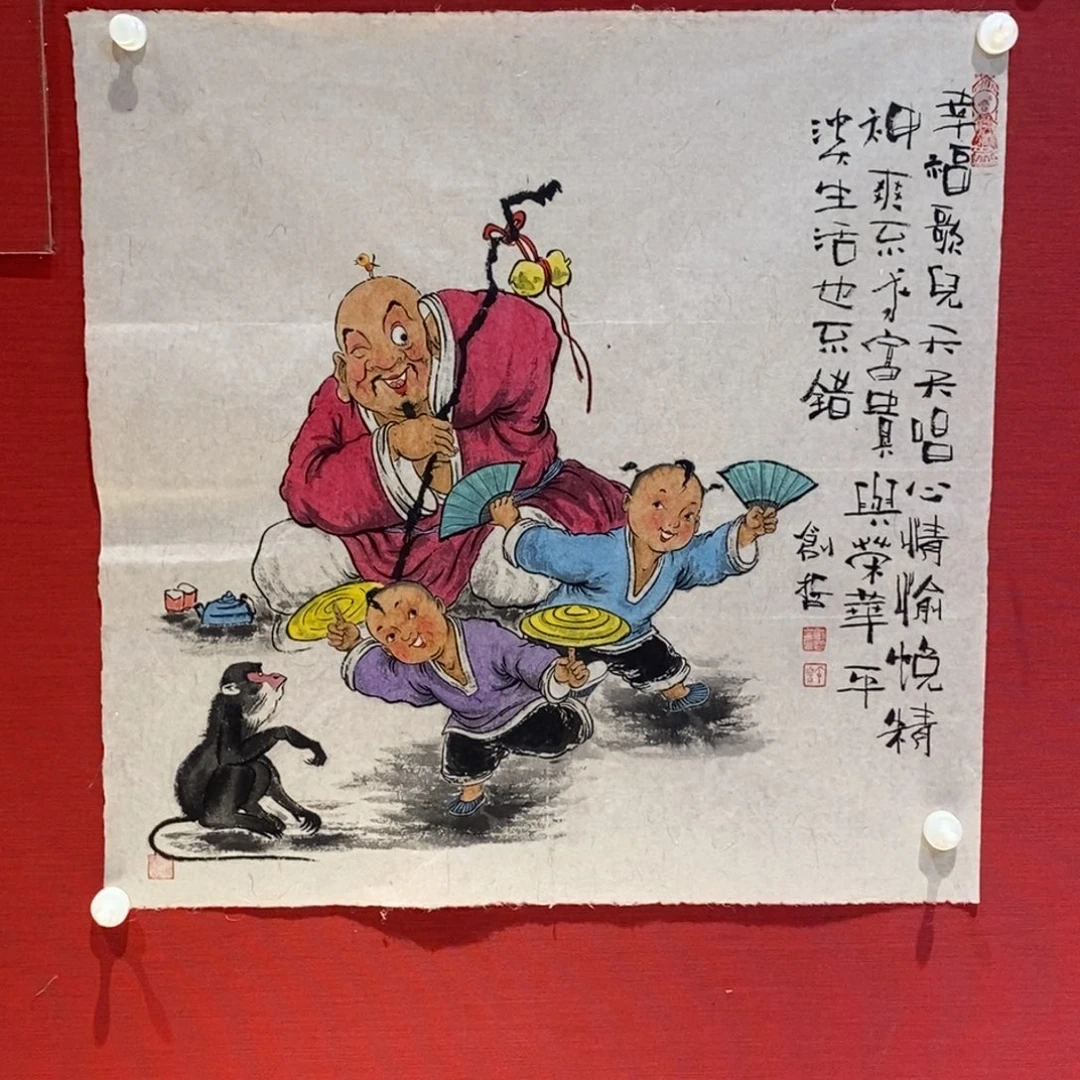 幸福歌兒天天唱心情愉悅精
神爽不求富貴與榮華平
淡生活也不錯
創哲